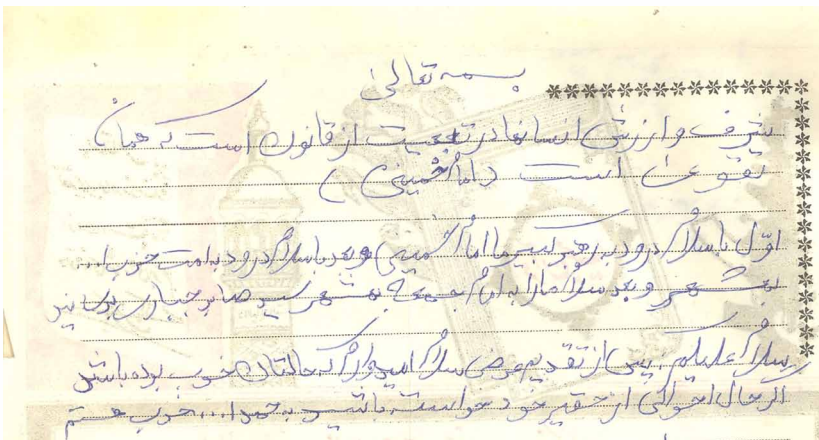 بسمه تعالی
شرف و ارزش انسانها در تبعیت از قانون است که همان
تقوی است (امام خمینی)
اوّل با سلام و درود به رهبر کبیر ما امام خمینی و بعد با سلام و درود به امت حزب ا...
به شهر و بعد سلام ما را به امام جمعه به شهر سید صابر جباری برسانید
سلام علیکم پس از تقدیم عرض سلام امیدوارم که حالتان خوب بوده باشد
اگر حال احوالی از حقیر خود خواسته باشید به حمدا... خوب هستم